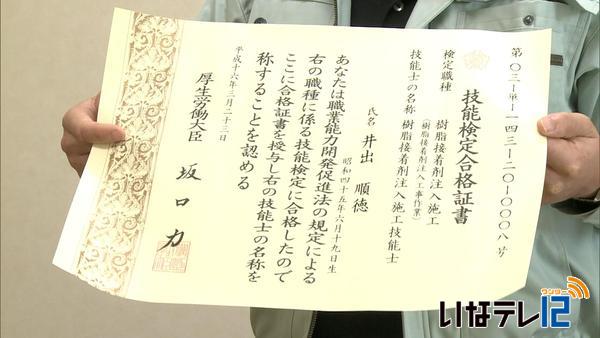 第〇三-単-一四三-二〇-〇〇〇八号
技能検定合格証書
検定職種 樹脂接着剤注入施工
(樹脂接着剤注入工事作業)
技能士の名称 樹脂接着剤注入施工技能士
氏名 井出 順徳
昭和四十五年六月十九日生
あなたは職業能力開発促進法の規定による
右の職種に係る技能検定に合格したので
ここに合格証書を授与し右の技能士の名称を
称することを認める
平成十六年三月二十三日
厚生労働大臣 坂口力
いなテレ12
ワンツー